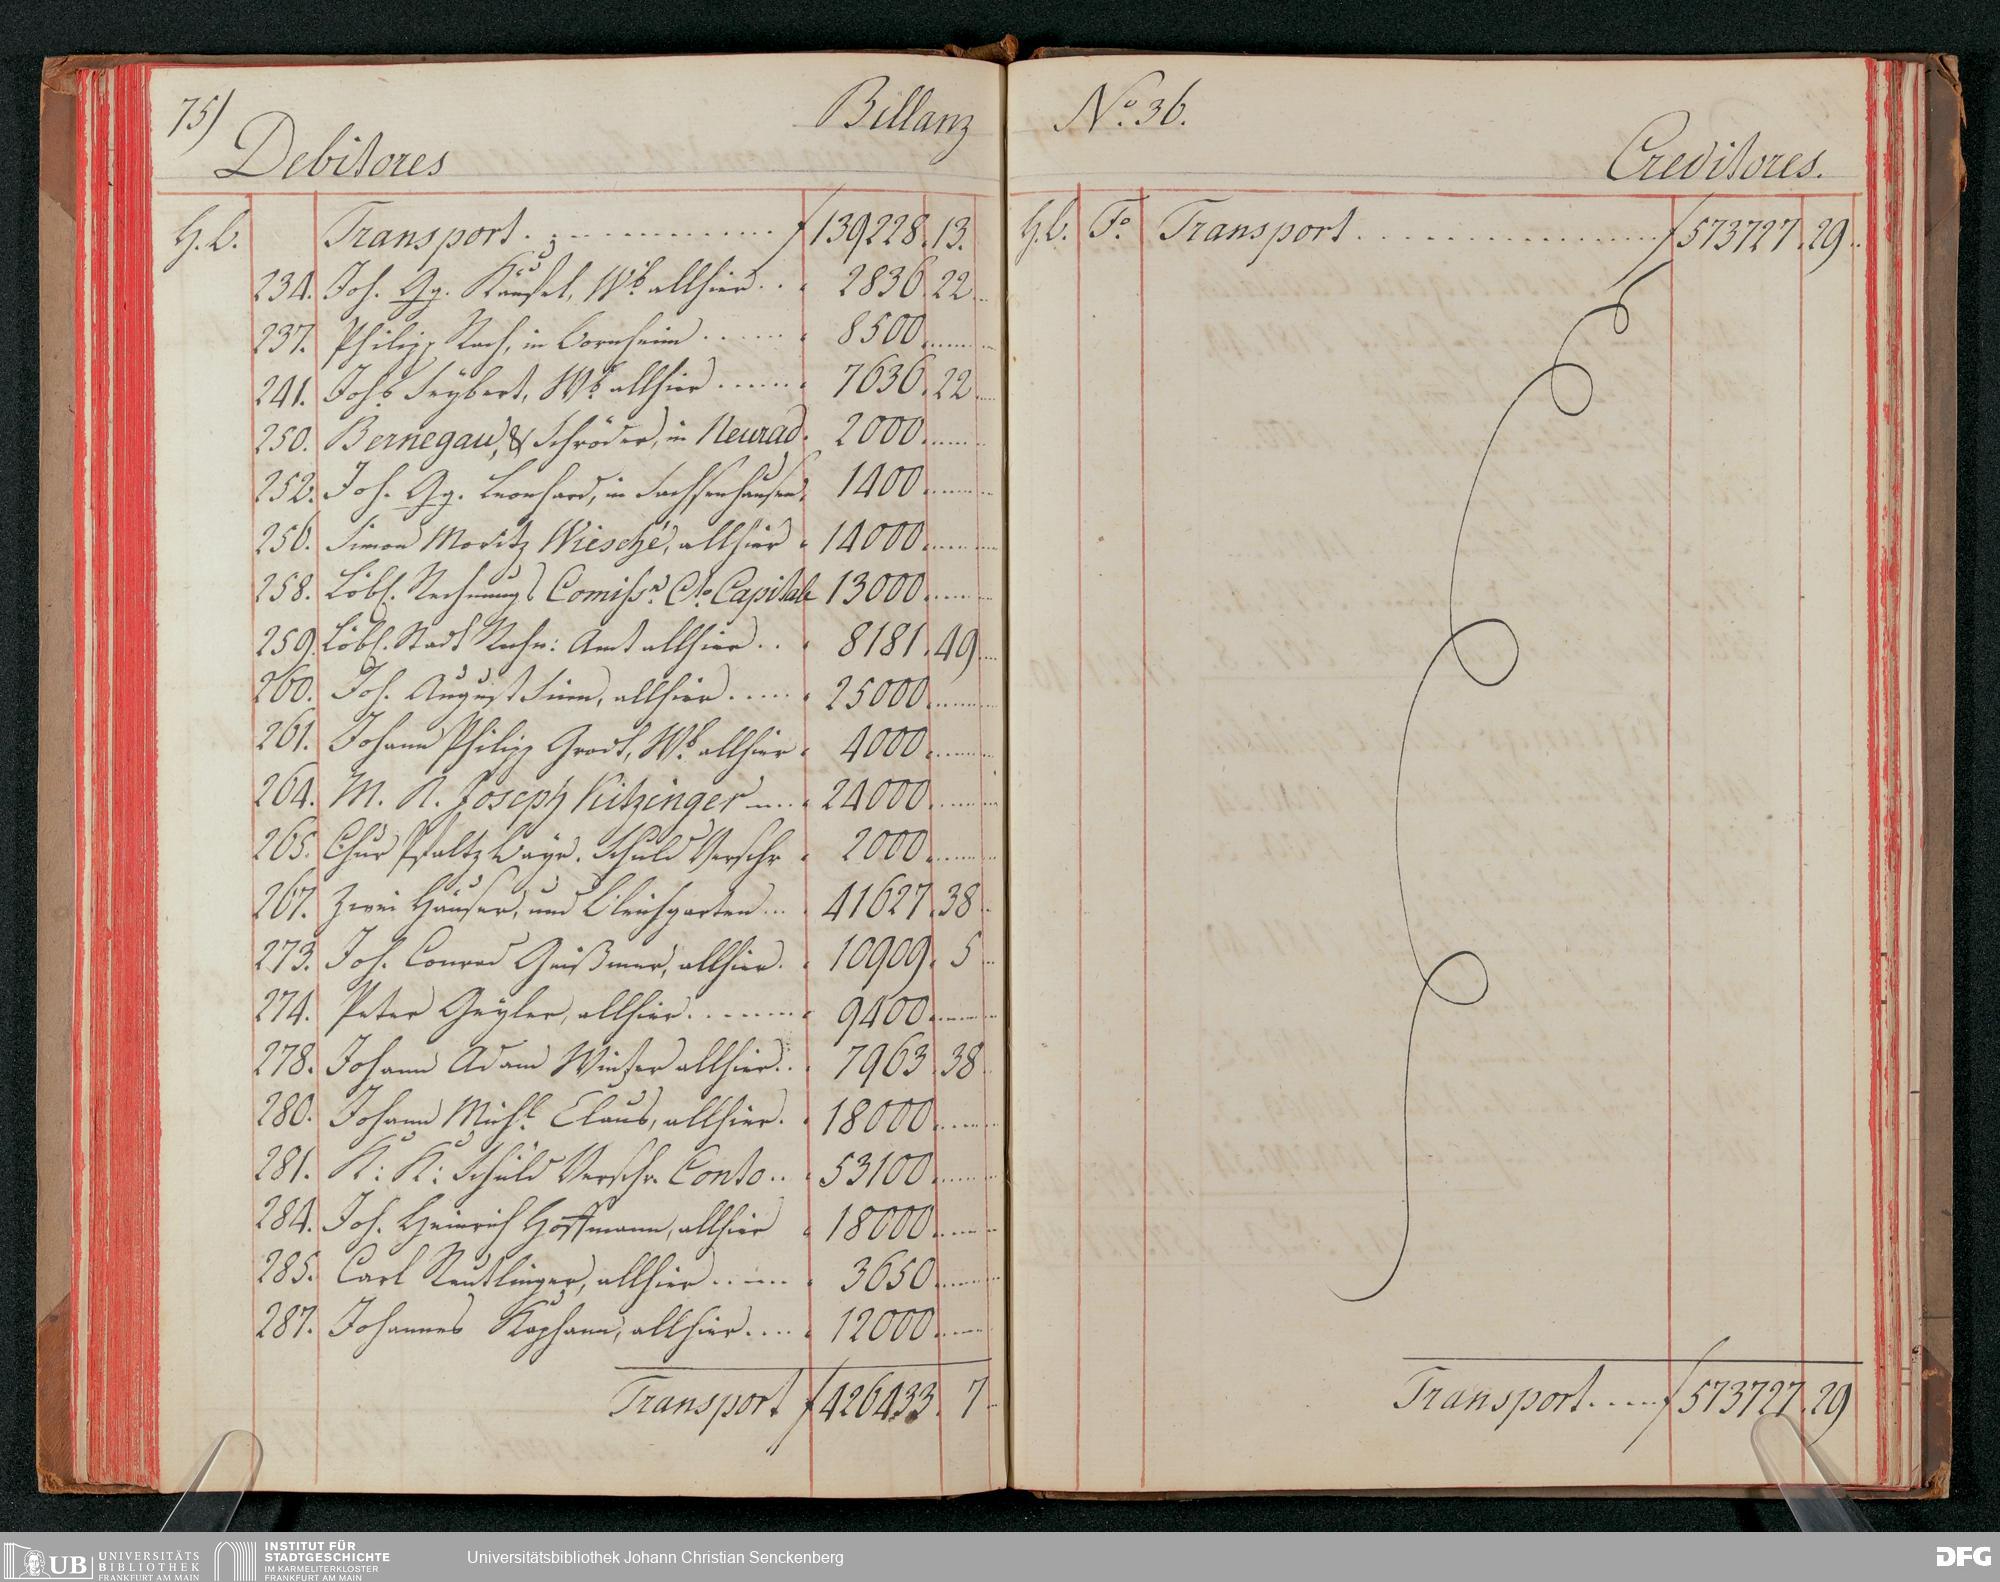 75)
Billanz
Debitores
H. b. Transport f 139228. 13.
234. Joh. Gg. Käusel, Wb. allhier 2836. 22
237. Philipp Rach, in Bornheim 8500
241. Johs Seybert, Wb. allhier 7636. 22
250. Bernegau, & Schröder, in Neurad 2000
252. Joh. Gg. Leonhard, in Sachsenhausen 1400
256. Simon Moritz Wiesché, allhier 14000
258. Löbl. Rechnungs Comissn. Cto. Capitale 13000
259. Löbl. Stadt Rechn: Amt allhier 8181. 49
260. Joh. August Finn, allhier 25000
261. Johann Philipp Grodt, Wb. allhier 4000
264. M. R. Joseph Kitzinger 24000
265. Chur Pfaltz Bayr. Schuld Verschr 2000
267. Zwei Häuser, und Bleichgarten 41627. 38
273. Joh. Conrad Geißmer, allhier. 10909. 5
274. Peter Geyler, allhier 9400
278. Johann Adam Winter allhier 7963. 38
280. Johann Michl. Claus, allhier. 18000
281. K: K: Schuld Verschr. Conto 53100
284. Joh. Heinrich Hoffmann, allhier 18000
285. Carl Reutlinger, allhier 3650
287. Johannes Kaphann, allhier 12000
Transport f 426433. 7
No. 36.
Creditores.
H. b. Fo. Transport f 573727. 29
Transport f 573727. 29
UB UNIVERSITÄTS
BIBLIOTHEK
FRANKFURT AM MAIN
INSTITUT FÜR
STADTGESCHICHTE
IM KARMELITERKLOSTER
FRANKFURT AM MAIN
Universitätsbibliothek Johann Christian Senckenberg
DFG